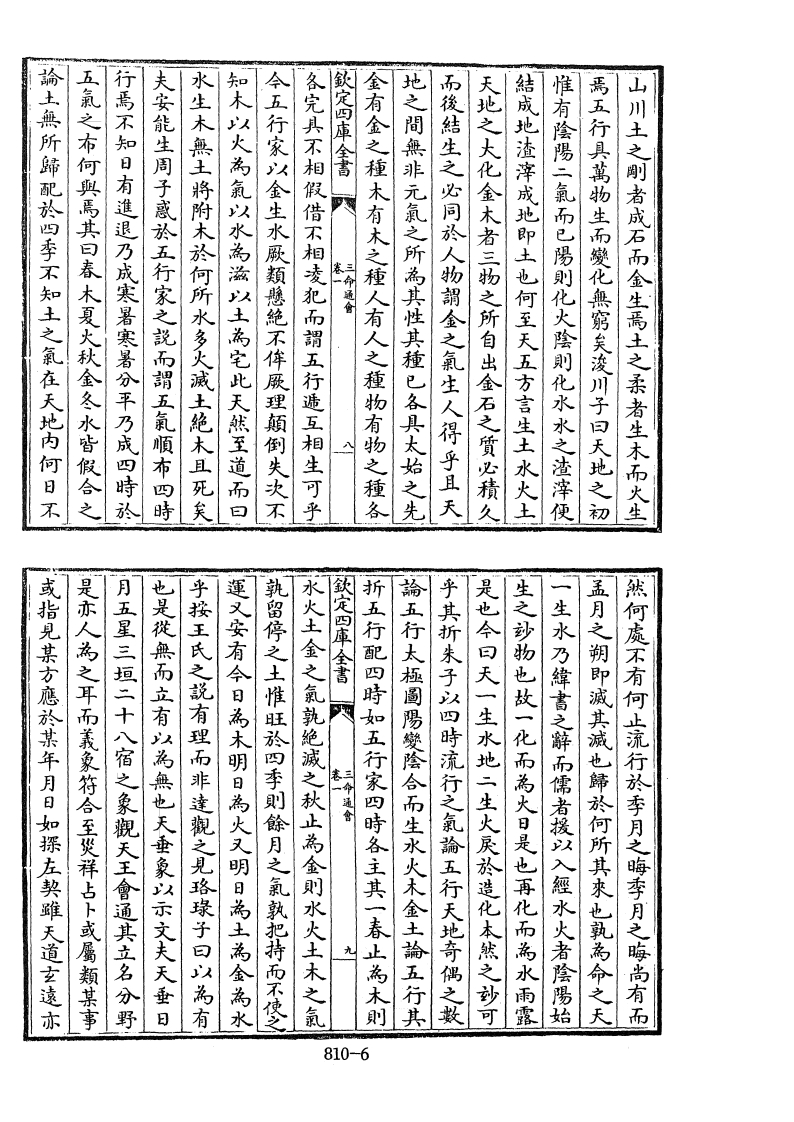 山川土之剛者成石而金生焉土之柔者生木而火生
焉五行具萬物生而變化無窮矣浚川子曰天地之初
惟有陰陽二氣而已陽則化火陰則化水水之渣滓便
結成地渣滓成地即土也何至天五方言生土水火土
天地之大化金木者三物之所自出金石之質必積久
而後結生之必同於人物謂金之氣生人得乎且天
地之間無非元氣之所為其性其種已各具太始之先
金有金之種木有木之種人有人之種物有物之種各
欽定四庫全書
三命通會
卷一
八
各完具不相假借不相凌犯而謂五行遞互相生可乎
今五行家以金生水厥類懸絶不侔厥理顛倒失次不
知木以火為氣以水為滋以土為宅此天然至道而曰
水生木無土將附木於何所水多火滅土絶木且死矣
夫安能生周子惑於五行家之説而謂五氣順布四時
行焉不知日有進退乃成寒暑寒暑分平乃成四時於
五氣之布何與焉其曰春木夏火秋金冬水皆假合之
論土無所歸配於四季不知土之氣在天地内何日不
然何處不有何止流行於季月之晦季月之晦尚有而
孟月之朔即滅其滅也歸於何所其來也孰為命之天
一生水乃緯書之辭而儒者援以入經水火者陰陽始
生之玅物也故一化而為火日是也再化而為水雨露
是也今曰天一生水地二生火戾於造化本然之玅可
乎其折朱子以四時流行之氣論五行天地奇偶之數
論五行太極圖陽變陰合而生水火木金土論五行其
折五行配四時如五行家四時各主其一春止為木則
欽定四庫全書
三命通會
卷一
九
水火土金之氣孰絶滅之秋止為金則水火土木之氣
孰留停之土惟旺於四季則餘月之氣孰把持而不使之
運又安有今日為木明日為火又明日為土為金為水
乎按王氏之説有理而非達觀之見珞琭子曰以為有
也是從無而立有以為無也天垂象以示文夫天垂日
月五星三垣二十八宿之象觀天王會通其立名分野
是亦人為之耳而義象符合至災祥占卜或屬類某事
或指見某方應於某年月日如探左契雖天道玄遠亦
810-6